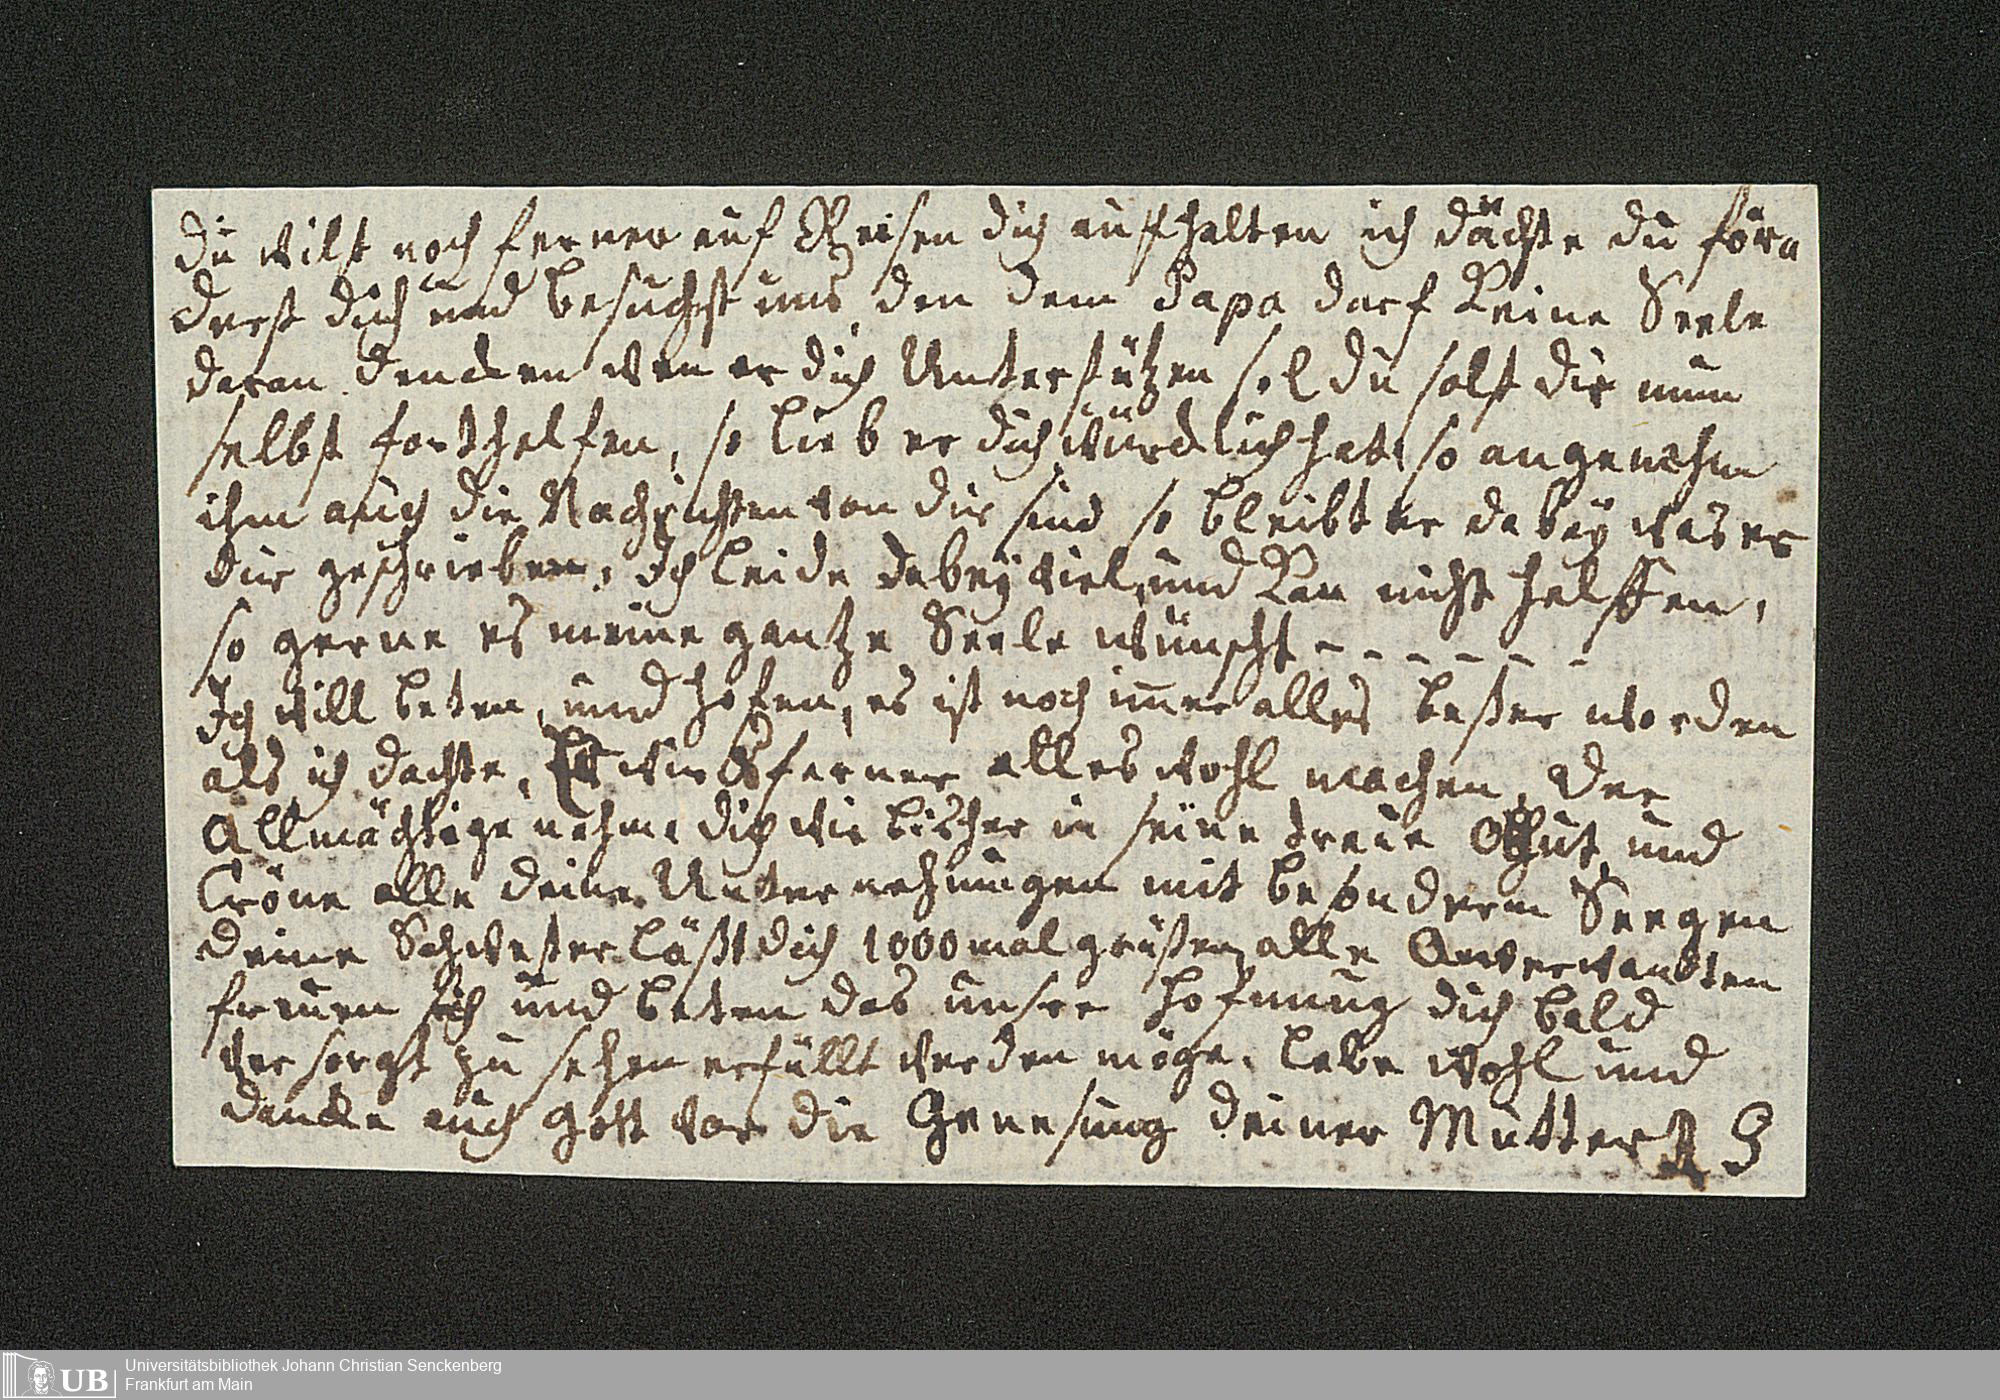 du wilst noch ferner auf Reisen dich auffhalten ich dächte du förn
derst dich und besuchst uns den dem Papa darf keine Seele
daran dencken wen er dich Unterstützen sol du solst dir nun
selbst forthelfen, so lieb er dich würcklich hat, so angenehm
ihm auch die Nachrichten von dir sind so bleibt er dabey was er
dir geschrieben, Ich leide dabey viel, und kan nicht helffen,
so gerne es meine gantze Seele wünscht - - - - - -
Ich will beten, und hofen, es ist noch im̅er alles beßer worden
als ich dachte, wird ferner alles wohl machen, Der
Allmächtige nehme dich wie bisher in seine treue Obhut und
Cröne alle deine Unternehmungen mit besonderm Seegen
deine Schwester läßt dich 1000 mal grüßen alle Anverwandten
freuen sich und beten das unsre Hofnung dich bald
versorgt zu sehen erfüllt werden möge. lebe wohl und
dancke auch Gott vor die Genesung deiner Mutter
UB Universitätsbibliothek Johann Christian Senckenberg
Frankfurt am Main